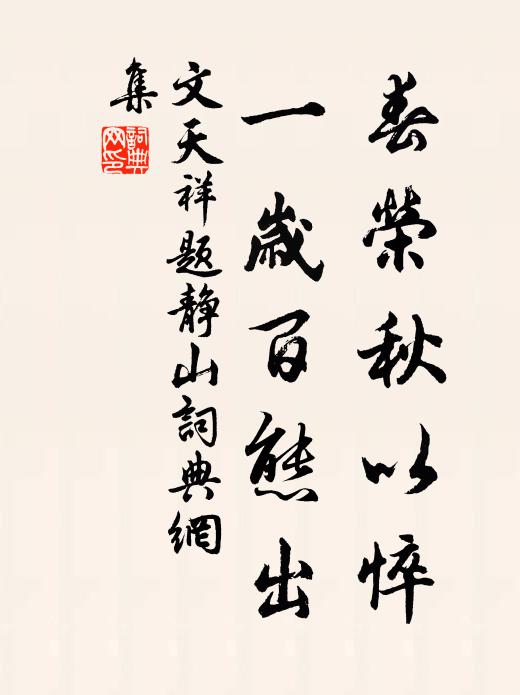 春榮秋以悴
一歲百態出
文天祥題靜山詞典網
集
詞典
网印